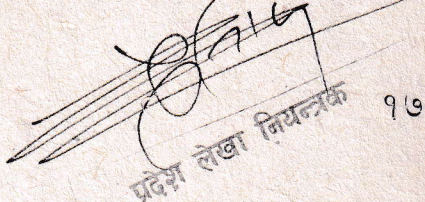 प्रदेश लेखा नियन्त्रक १७